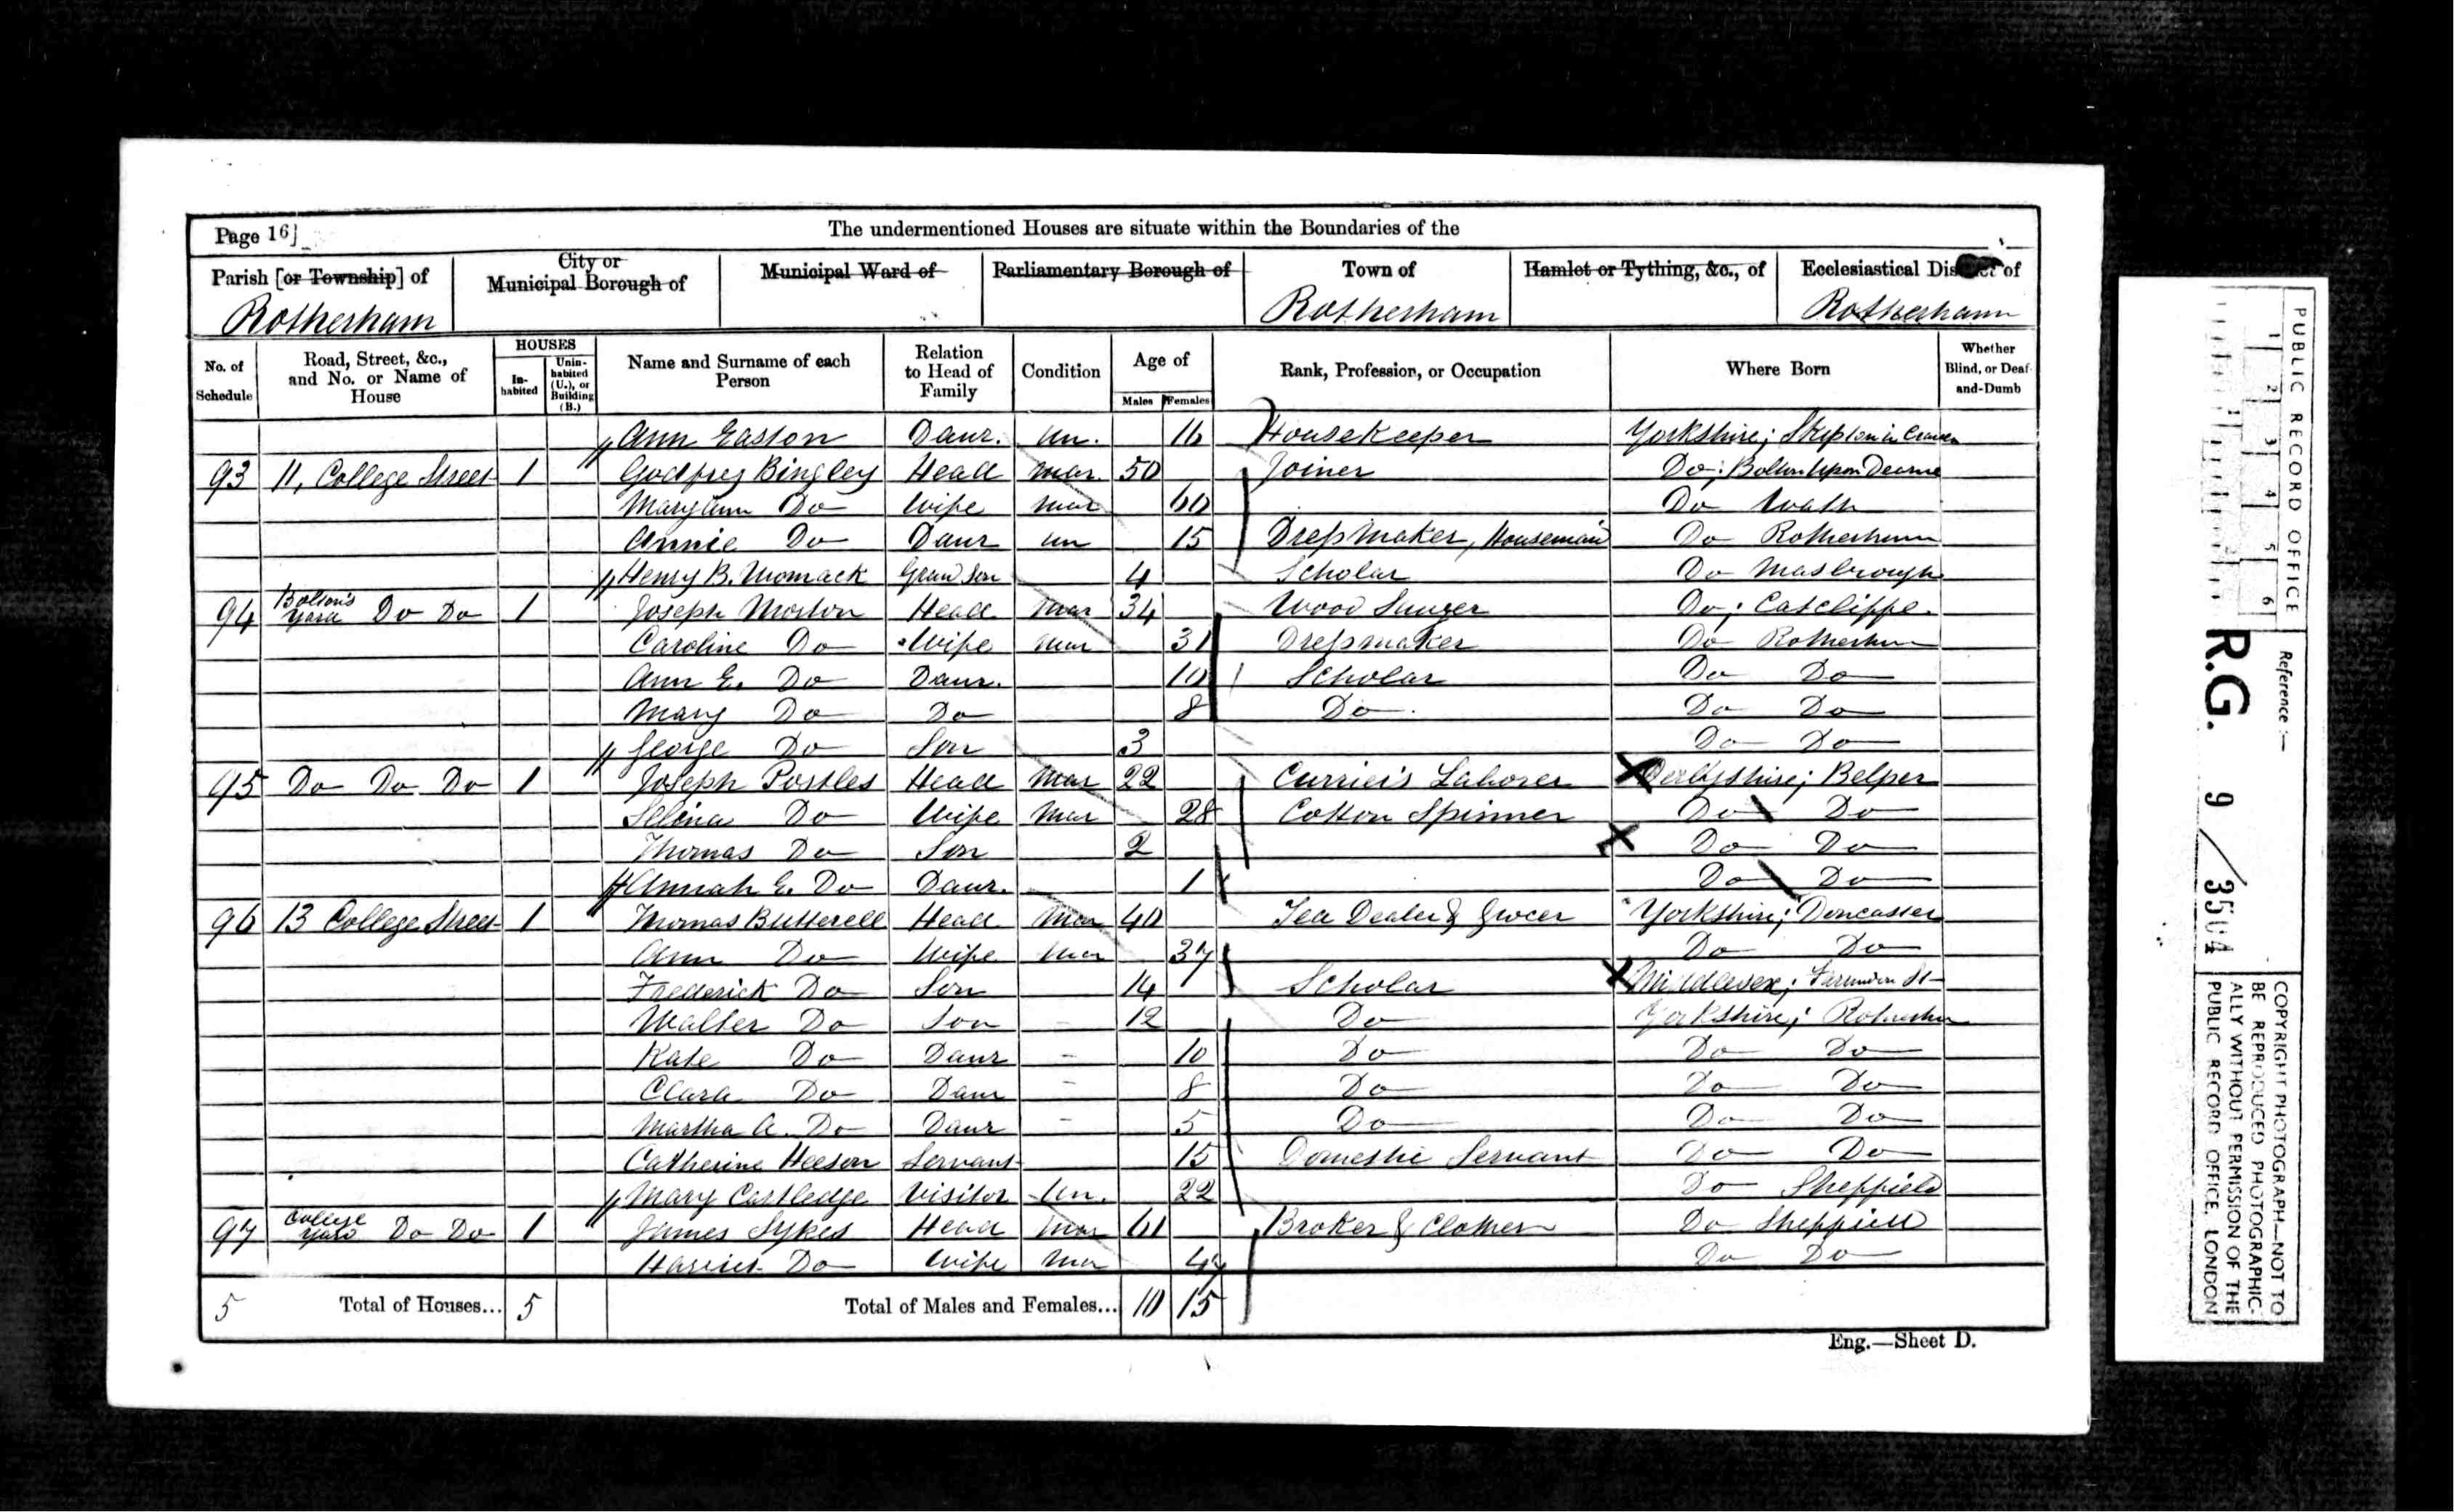 Page 16]
The undermentioned Houses are situate within the Boundaries of the
Parish [or Township] of
City or Municipal Borough of
Municipal Ward of
Parliamentary Borough of
Town of
Hamlet or Tything, &c., of
Ecclesiastical District of
Rotherham
Rotherham
Rotherham
No. of Schedule
Road, Street, &c., and No. or Name of House
HOUSES
In-habited
Unin-habited (U.), or Building (B.)
Name and Surname of each Person
Relation to Head of Family
Condition
Age of
Males
Females
Rank, Profession, or Occupation
Where Born
Whether Blind, or Deaf-and-Dumb
Ann Easton Daur. Un. 16 Housekeeper Yorkshire; Skipton in Craven
93 11, College Street 1 Godfrey Bingley Head Mar. 50 Joiner Do; Bolton Upon Dearne
Maryann Do Wife Mar 60 Do Wath
Annie Do Daur Un 15 Dressmaker, Housemaid Do Rotherham
Henry B. Womack Grand Son 4 Scholar Do Masbrough
94 Bolton's Yard Do Do 1 Joseph Morton Head Mar 34 Wood Do; Catcliffe.
Caroline Do Wife Mar 31 Dressmaker Do Rotherham
Ann E. Do Daur. 10 Scholar Do Do
Mary Do Do 8 Do Do Do
George Do Son 3 Do Do
95 Do Do Do 1 Joseph Postles Head Mar 22 Currier's Laborer Derbyshire; Belper
Selina Do Wife Mar 28 Cotton Spinner Do Do
Thomas Do Son 2 Do Do
Annah E. Do Daur. 1 Do Do
96 13 College Street 1 Thomas Butterell Head Mar 40 Tea Dealer & Grocer Yorkshire; Doncaster
Ann Do Wife Mar 37 Do Do
Frederick Do Son 14 Scholar Middlesex; St
Walter Do Son 12 Do Yorkshire; Rotherham
Kate Do Daur 10 Do Do Do
Clara Do Daur 8 Do Do Do
Martha A. Do Daur 5 Do Do Do
Catherine Heeson Servant 15 Domestic Servant Do Do
Mary Castledge Visitor Un. 22 Do Sheffield
97 College Yard Do Do 1 James Sykes Head Mar 61 Broker & Clothier Do Sheffield
Harriet Do Wife Mar 47 Do Do
5 Total of Houses... 5 Total of Males and Females... 10 15
Eng.—Sheet D.
PUBLIC RECORD OFFICE
1 2 3 4 5 6
Reference:—
R.G. 9/3504
COPYRIGHT PHOTOGRAPH—NOT TO
BE REPRODUCED PHOTOGRAPHIC-
ALLY WITHOUT PERMISSION OF THE
PUBLIC RECORD OFFICE, LONDON